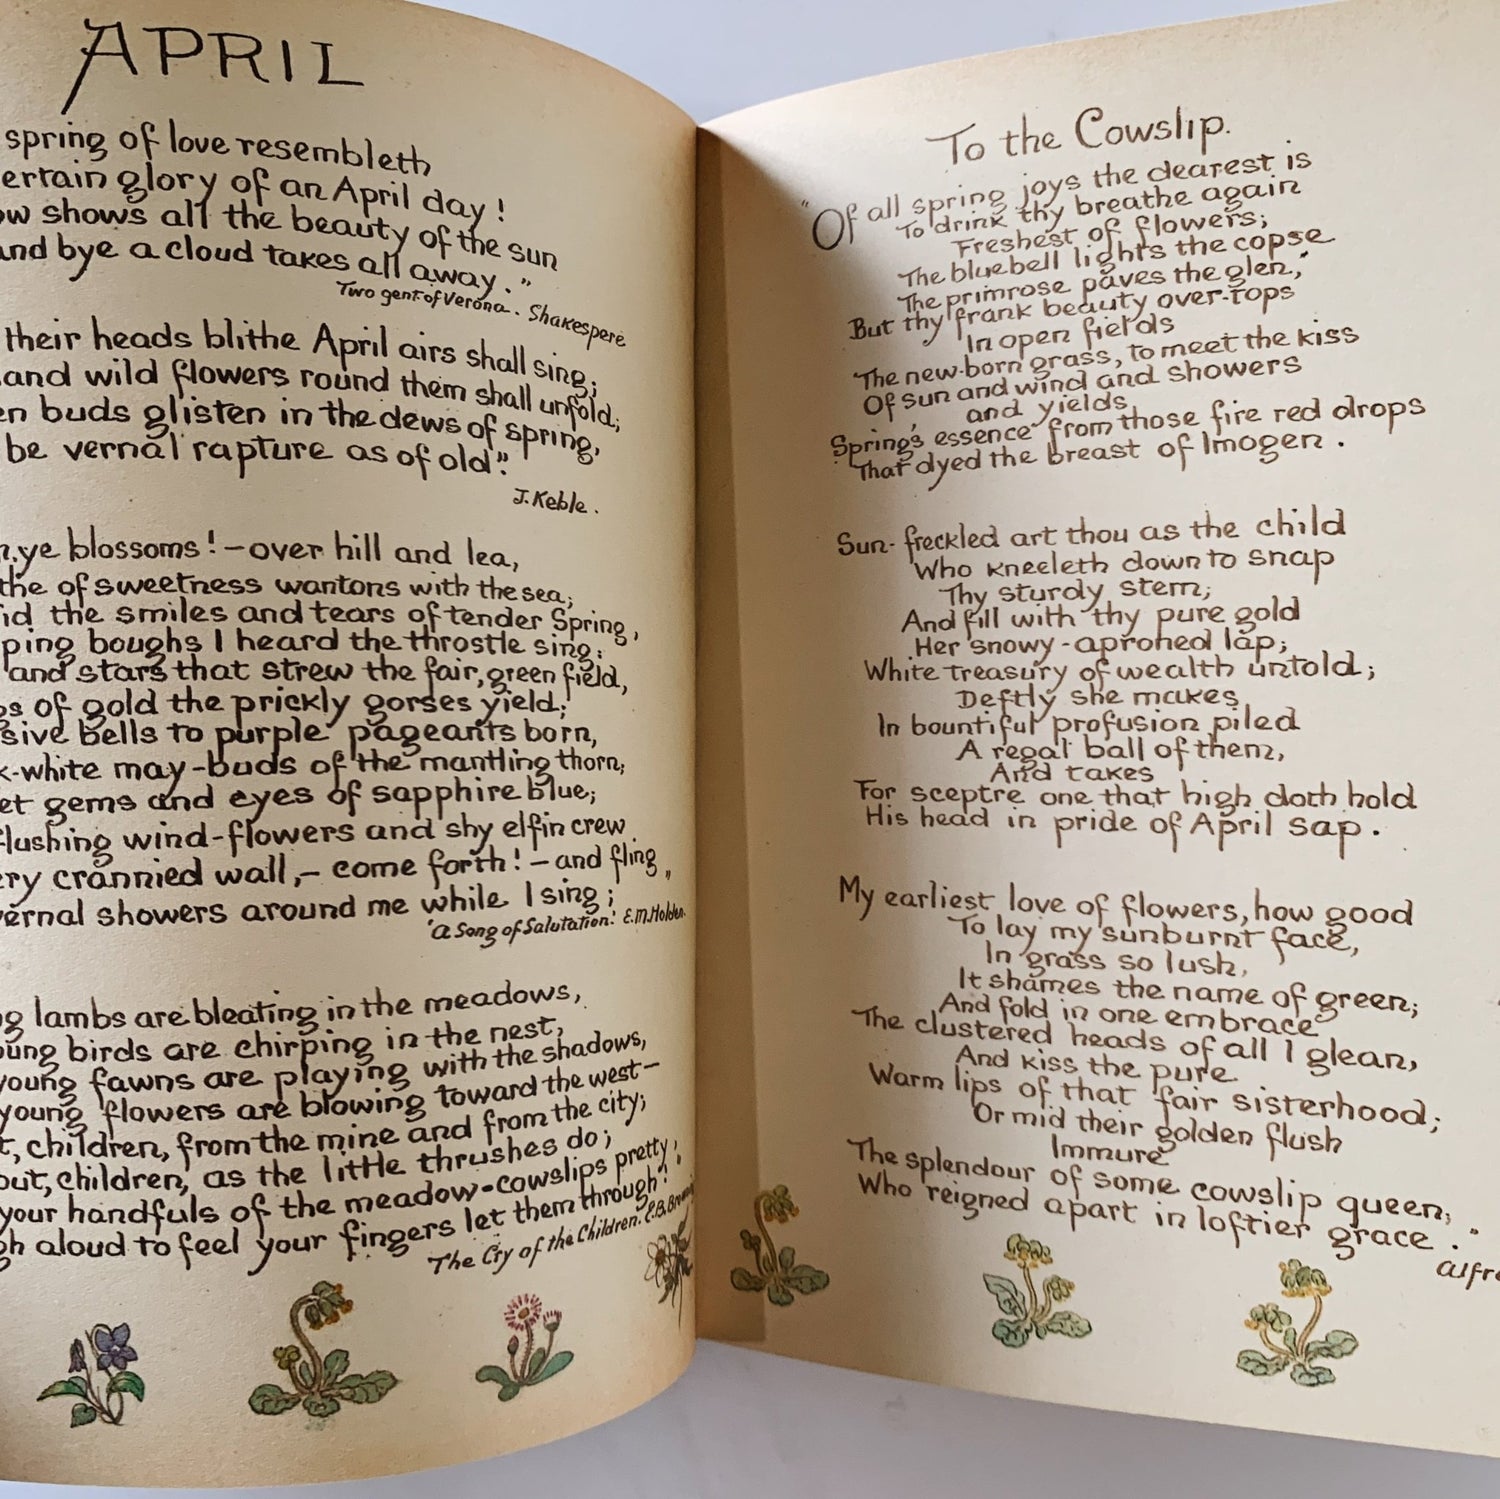 APRIL
spring of love resembleth
ertain glory of an April day!
ow shows all the beauty of the sun
and bye a cloud takes all away."
Two gent. of Verona. Shakespere
their heads blithe April airs shall sing;
and wild flowers round them shall unfold;
en buds glisten in the dews of spring,
be vernal rapture as of old".
J. Keble.
n, ye blossoms! - over hill and lea,
the of sweetness wantons with the sea;
id the smiles and tears of tender Spring,
ping boughs I heard the throstle sing;
and stars that strew the fair, green field,
gs of gold the prickly gorses yield;
sive bells to purple pageants born,
k-white may-buds of the mantling thorn;
et gems and eyes of sapphire blue;
flushing wind-flowers and shy elfin crew
ery crannied wall, - come forth! - and fling
vernal showers around me while I sing;"
'a Song of Salutation.' E.M.Holden.
ng lambs are bleating in the meadows,
oung birds are chirping in the nest,
young fawns are playing with the shadows,
young flowers are blowing toward the west-
t, children, from the mine and from the city;
out, children, as the little thrushes do;
your handfuls of the meadow-cowslips pretty,
gh aloud to feel your fingers let them through!"
The Cry of the Children. E.B.Brownin
To the Cowslip.
"Of all spring joys the dearest is
To drink thy breathe again
Freshest of flowers;
The bluebell lights the copse
The primrose paves the glen,"
But thy frank beauty over-tops
In open fields
The new-born grass, to meet the kiss
Of sun and wind and showers
and yields
Spring's essence from those fire red drops
That dyed the breast of Imogen.
Sun-freckled art thou as the child
Who kneeleth down to snap
Thy sturdy stem;
And fill with thy pure gold
Her snowy-aproned lap;
White treasury of wealth untold;
Deftly she makes
In bountiful profusion piled
A regal ball of them,
And takes
For sceptre one that high doth hold
His head in pride of April sap.
My earliest love of flowers, how good
To lay my sunburnt face,
In grass so lush,
It shames the name of green;
And fold in one embrace
The clustered heads of all I glean,
And kiss the pure
Warm lips of that fair sisterhood;
Or mid their golden flush
Immure
The splendour of some cowslip queen,
Who reigned apart in loftier grace."
Alfre